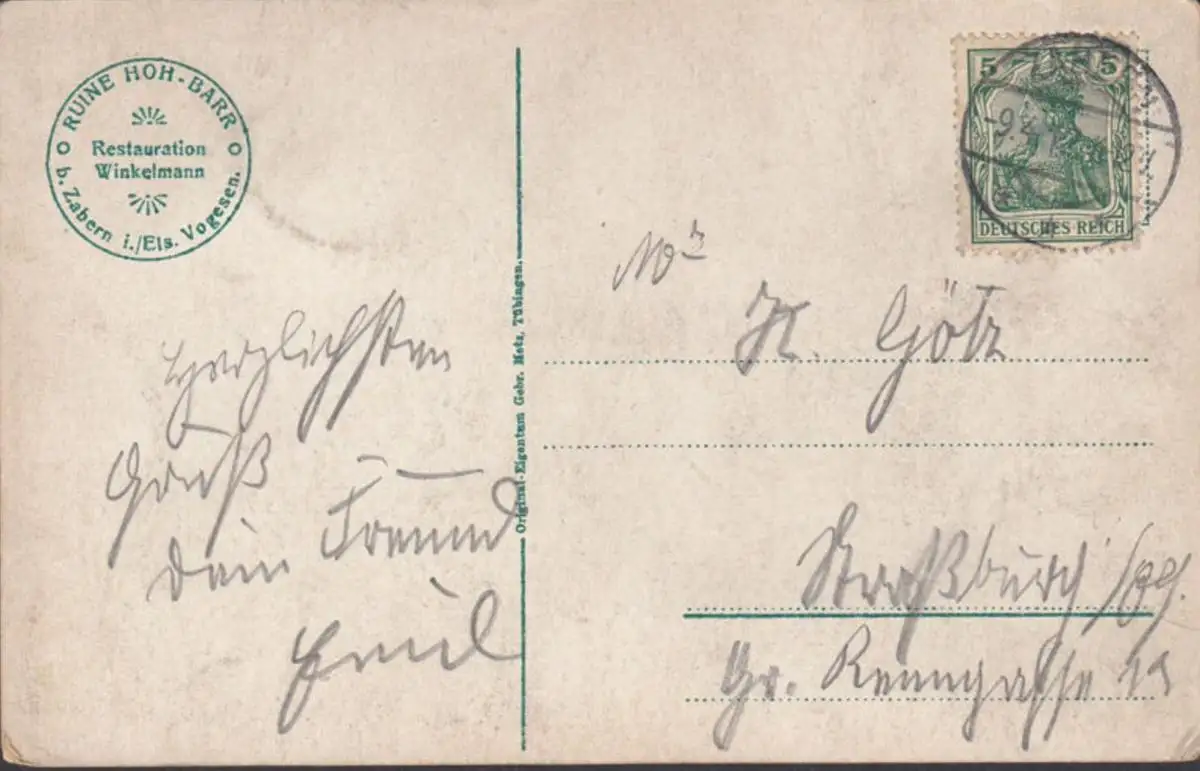 RUINE HOH-BARR
Restauration
Winkelmann
b. Zabern i./Els. Vogesen.
5 5
DEUTSCHES REICH
Herzlichsten
Gruß
Dein Freund
Original-Eigentum Gebr. Metz, Tübingen.
H. Götz
Straßburg
Gr. Renngasse